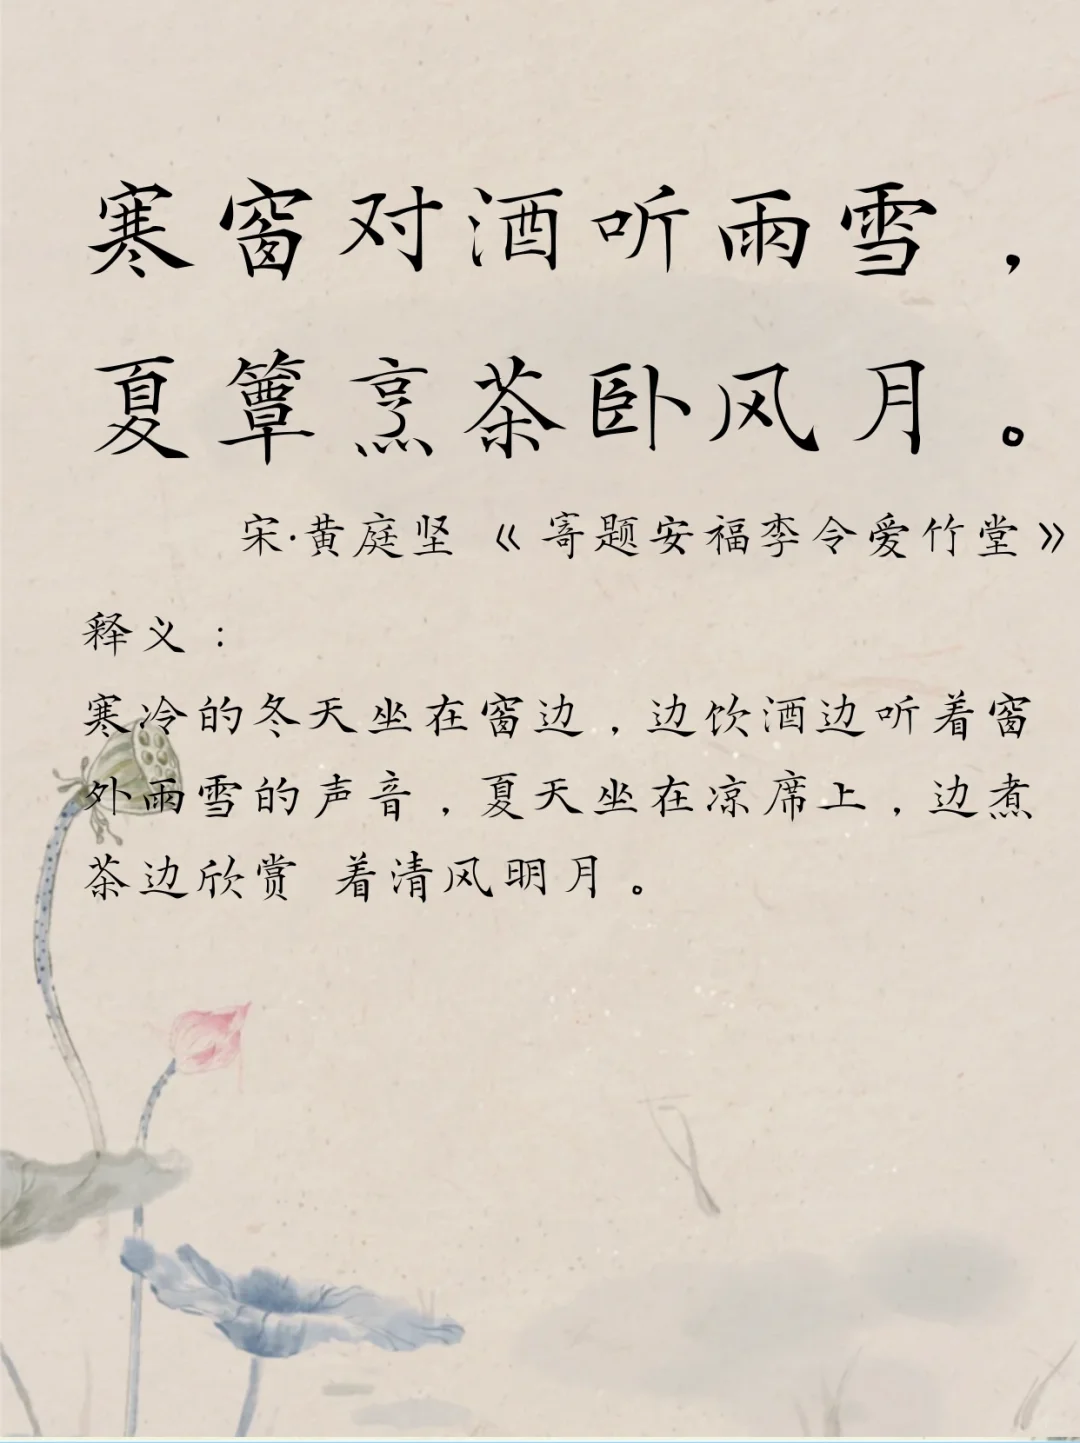 寒窗对酒听雨雪，
夏簟烹茶卧风月。
宋·黄庭坚《寄题安福李令爱竹堂》
释义：
寒冷的冬天坐在窗边，边饮酒边听着窗
外雨雪的声音，夏天坐在凉席上，边煮
茶边欣赏 着清风明月。